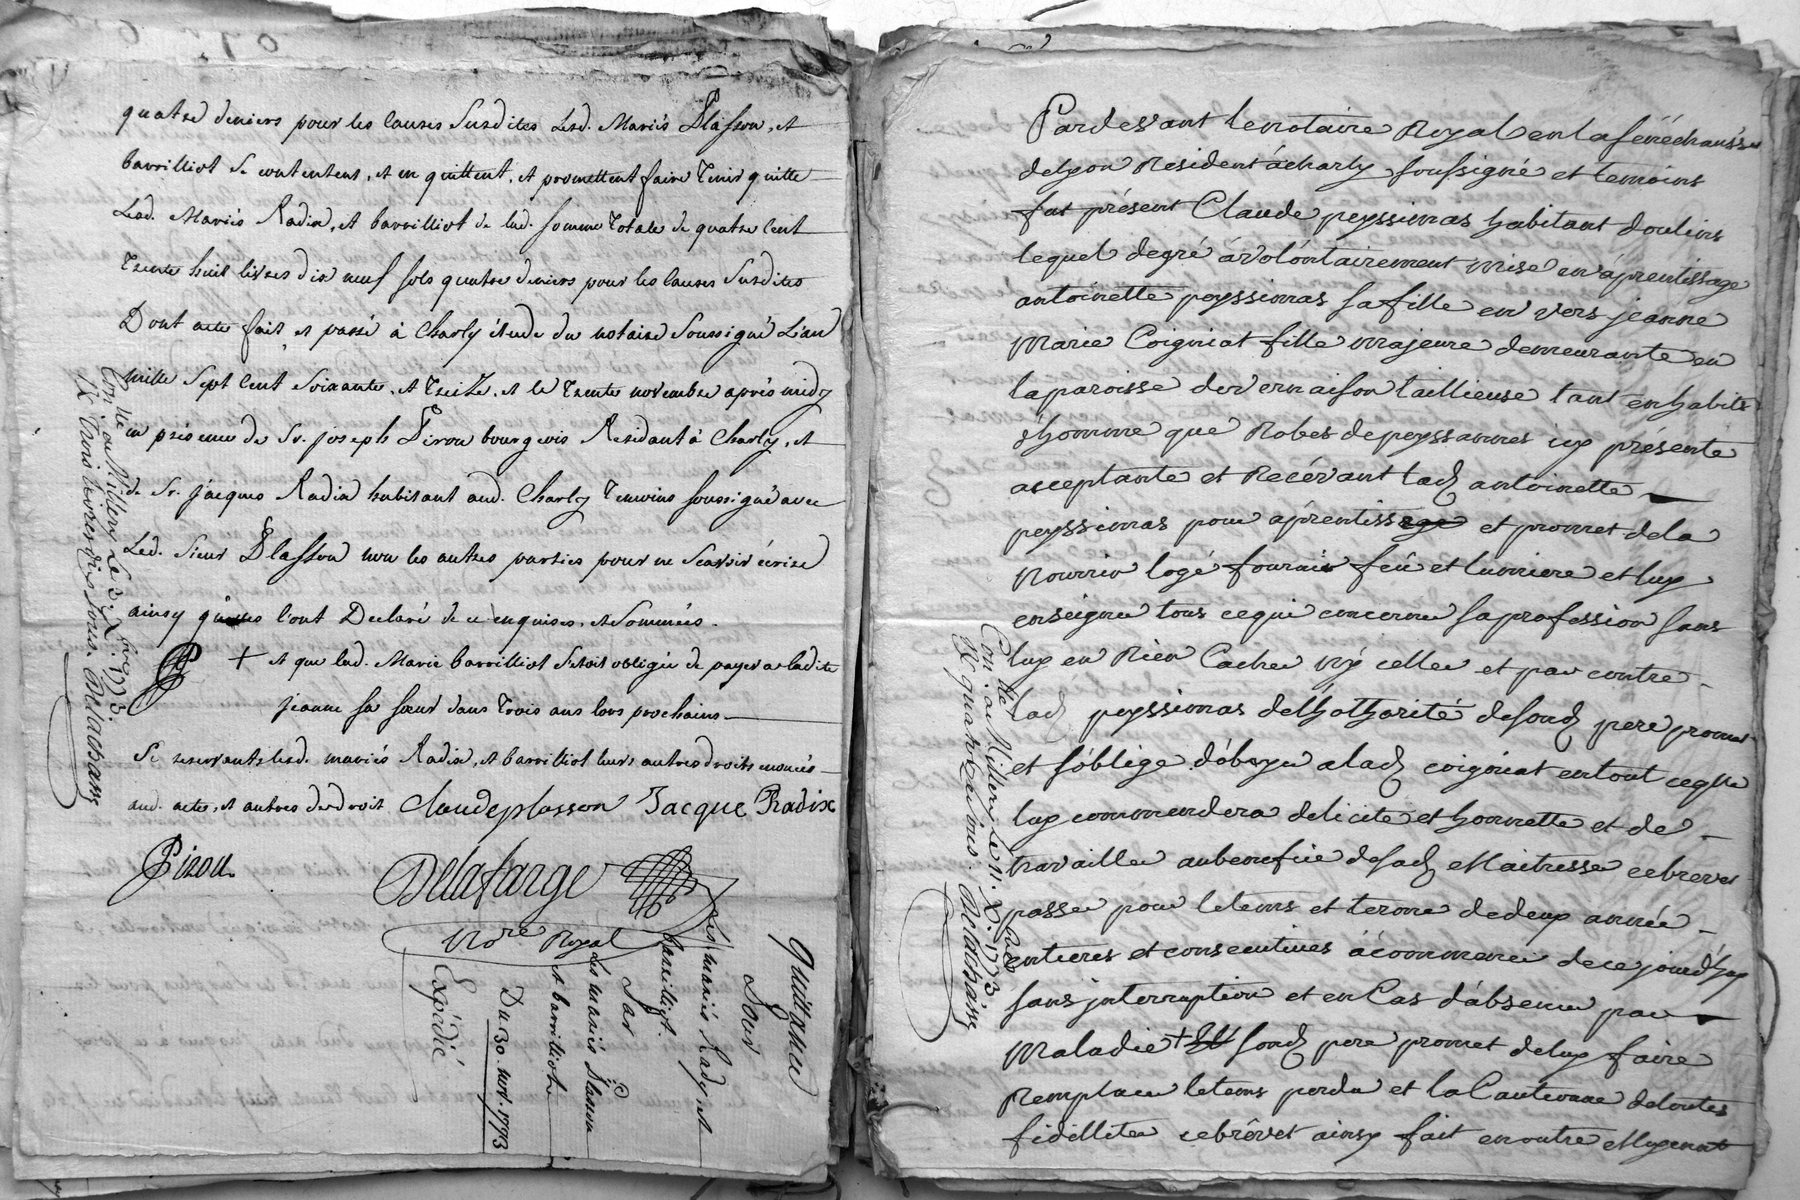 quatre deniers pour les causes Susdites Lesd. Mariés Plasson, et
barrilliot Se contentent, et en quittent, et promettent faire Tenir quitte
Lesd. Mariés Radix, et barrilliot de lad. somme Totale de quatre Cent
Trente huit livres dix neuf sols quatre deniers pour les Causes Susdites
Dont acte fait et passé à Charly étude du notaire Soussigné L'an
mille Sept Cent Soixante et Treize, et le Trente novembre après midy
en présence de Sr. joseph Pirou bourgeois Residant à Charly, et
de Sr. jacques Radix habitant aud. Charly Temoins soussigné avec
Led. Sieur Plasson non les autres parties pour ne Scavoir écrire
ainsy qu'elles l'ont Declaré de ce enquises, et Sommées.
+ et que lad. Marie barrilliot S'étoit obligée de payer a ladite
jeanne sa sœur dans Trois ans lors prochains
Se reservants lesd. mariés Radix, et barrilliot leurs autres droits enoncés
aud. acte, et autres de droit Claude plasson Jacque Radix
Pirou
Delafarge
Nore Royal
Expédié
Con.lé au Millery Le 3. Xbre 1773.
Rx Trois livres dix sous. Delachaise
quittance
Pour
Les mariés Radix et
barrilliot.
Par
Les mariés Plasson
et barrilliot
Du 30. nov. 1773
Pardevant le notaire Royal en la sénéchaussée
de lyon Résident à charly soussigné et temoins
fut présent Claude peyssimas habitant doulins
lequel de gré à volontairement mise en aprentissage
antoinette peyssimas sa fille en vers jeanne
Marie Coigniat fille majeure demeurante en
la paroisse de vernaison taillieuse tant en habits
d'homme que Robes de peyssannes icy présente
acceptante et Recévant lad antoinette
peyssimas pour aprentissage et promet de la
Nourrir logé fournir feû et lumiere et luy
enseigner tous cequi concerne sa profession sans
luy en Rien Cacher ny celler et par contre
lad peyssimas de lhothorité de sond pere promet
et sóblige dóbeyr a lad coigniat en tout ceq'lle
luy commendera de licite et honnette et de
travailler au benefice de sad Maitresse ce brevet
passé pour le tems et terme de deux année
entieres et consecutives à commencer de ce jourd'huy
sans jnterruption et en Cas d'absence par
Maladie + sond pere promet de luy faire
Remplacer le tems perdu et la Cautionne de toutes
fidellité ce brévet ainsy fait en outre Moyenant
Con.lé au Millery Le 11. Xbre 1773
R. quinze sous. Delachaise